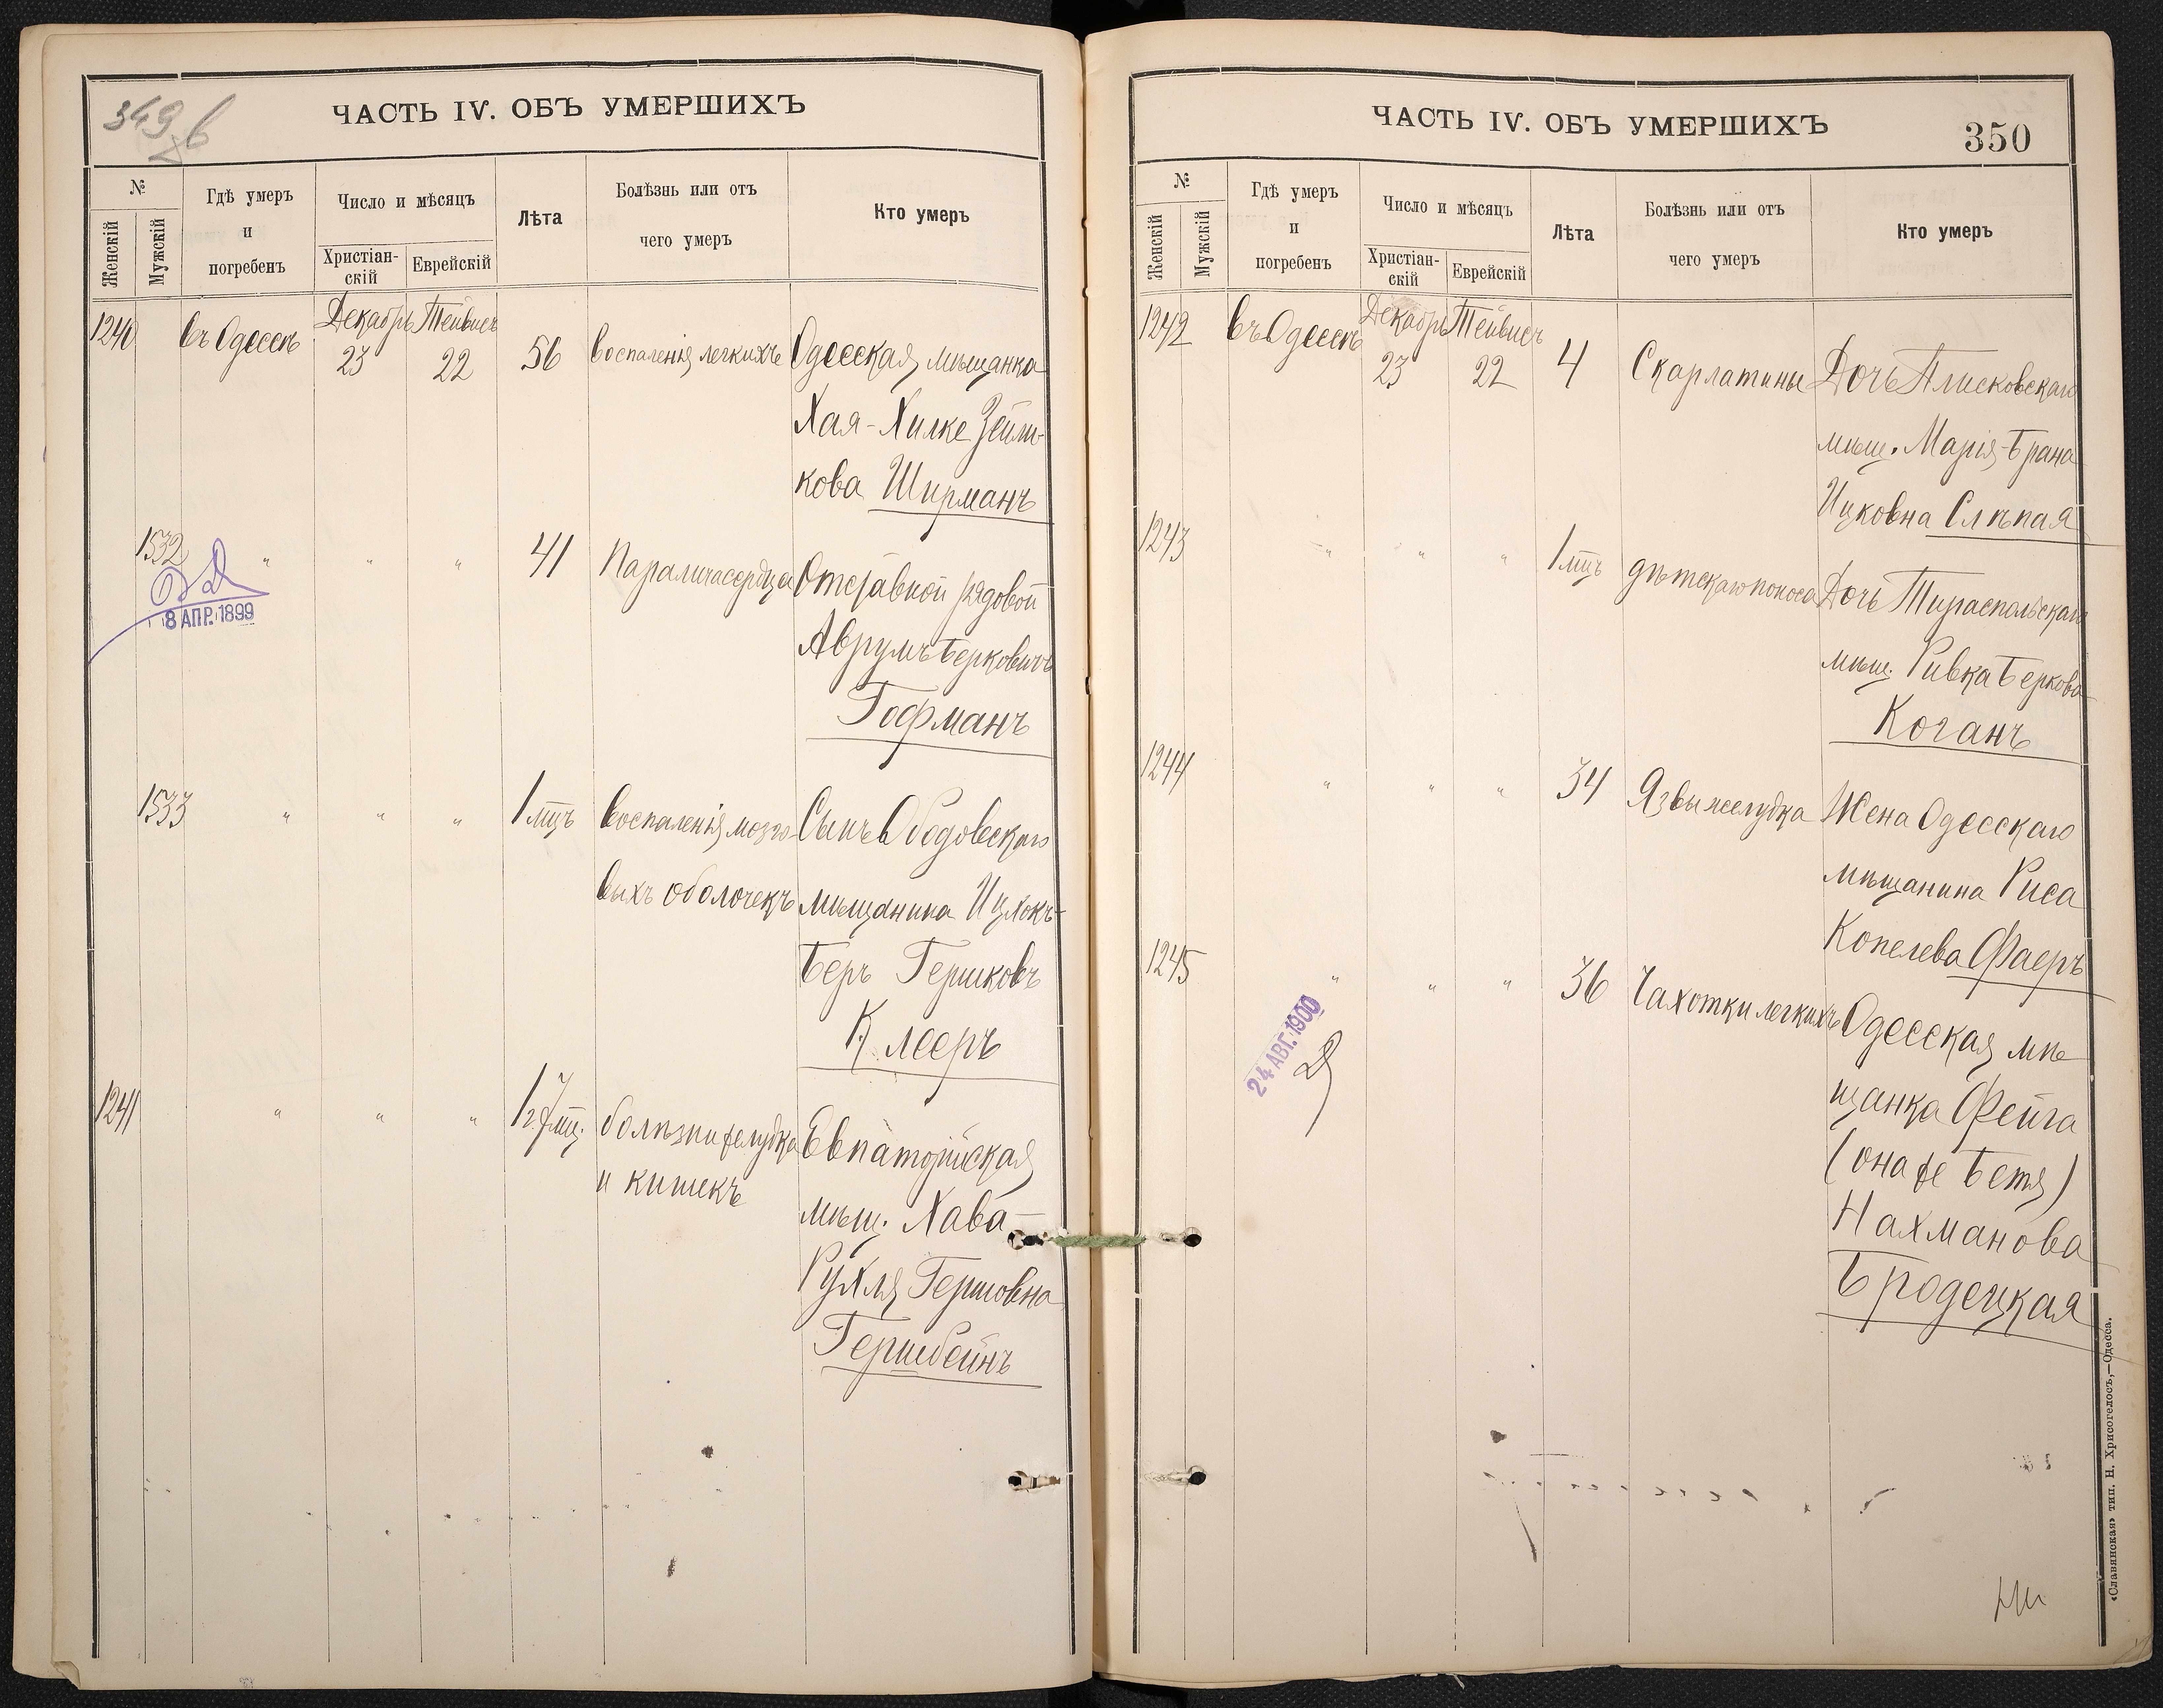 349 б
ЧАСТЬ IV. ОБЪ УМЕРШИХЪ
№
Женскій
Мужскій
Гдѣ умеръ
и
погребенъ
Число и мѣсяцъ
Христіан-
скій
Еврейскій
Лѣта
Болѣзнь или отъ
чего умеръ
Кто умеръ
1240 въ Одессѣ Декабрь 23 Тейвисъ 22 56 воспаленія легкихъ Одесская мѣщанка
Хая-Хилке Зейли-
кова Ширманъ
1532 " " " 41 Паралича сердца Отставной рядовой
8 АПР. 1899
Аврумъ Берковичъ
Гофманъ
1533 " " " 1 мцъ воспаленія мозго- Сынъ Ободовскаго
выхъ оболочекъ мѣщанина Ицхокъ-
Беръ Гершковъ
Клееръ
1241 " " " 1 г. 7 мц. болѣзни желудка Евпаторійская
и кишекъ мѣщ. Хава-
Рухля Гершовна
Гершбейнъ
ЧАСТЬ IV. ОБЪ УМЕРШИХЪ
350
№
Женскій
Мужскій
Гдѣ умеръ
и
погребенъ
Число и мѣсяцъ
Христіан-
скій
Еврейскій
Лѣта
Болѣзнь или отъ
чего умеръ
Кто умеръ
1242 въ Одессѣ Декабрь 23 Тейвисъ 22 4 Скарлатины Дочь Плисковскаго
мѣщ. Марія-Брана
Ицковна Слѣпая
1243 " " " 1 мцъ дѣтскаго поноса Дочь Тираспольскаго
мѣщ. Ривка Беркова
Коганъ
1244 " " " 34 Язвы желудка Жена Одесскаго
мѣщанина Риса
Копелева Фаеръ
1245 " " " 36 Чахотки легкихъ Одесская мѣ
24 АВГ. 1900
щанка Фейга
(она же Бетя)
Нахманова
Бродецкая
«Славянская» тип. Н. Хрисогелосъ,—Одесса.